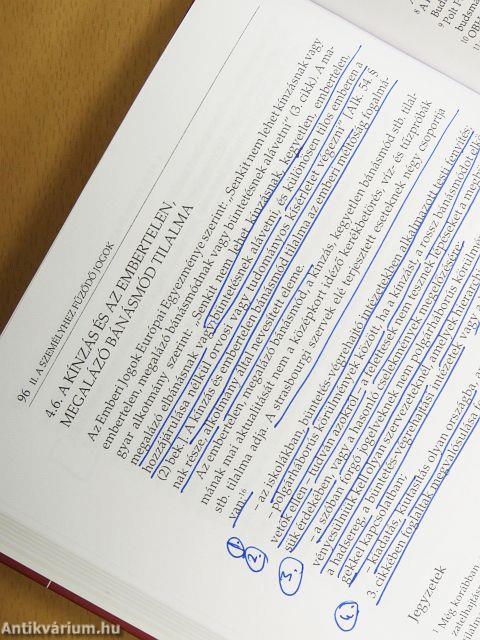 96 II. A SZEMÉLYHEZ FŰZŐDŐ JOGOK
4.6. A KÍNZÁS ÉS AZ EMBERTELEN,
MEGALÁZÓ BÁNÁSMÓD TILALMA
Az Emberi Jogok Európai Egyezménye szerint: „Senkit nem lehet kínzásnak vagy
embertelen, megalázó bánásmódnak vagy büntetésnek alávetni” (3. cikk). A ma-
gyar alkotmány szerint: „Senkit nem lehet kínzásnak, kegyetlen, embertelen,
megalázó elbánásnak vagy büntetésnek alávetni, és különösen tilos emberen a
hozzájárulása nélkül orvosi vagy tudományos kísérletet végezni” [Alk. 54. §
(2) bek.]. A kínzás és embertelen bánásmód tilalma az emberi méltóság fogalmá-
nak része, alkotmány által nevesített eleme.
Az embertelen, megalázó bánásmód, a kínzás, kegyetlen bánásmód stb. tilal-
mának mai aktualitását nem a középkort idéző kerékbetörés, víz- és tűzpróbák
stb. tilalma adja. A strasbourgi szervek elé terjesztett eseteknek négy csoportja
van:16
1. – az iskolákban, büntetés-végrehajtó intézetekben alkalmazott testi fenyítés;
2. – polgárháborús körülmények között, ha a kínzást, a rossz bánásmódot
vetők ellen – tudván azokról – a felettesek nem tesznek lépéseket a
sük érdekében, vagy a hasonló cselekmények megelőzésére;
3. – a szóban forgó jogelveknek nem polgárháborús
vényesülniük kell olyan szervezeteknél, amelyek
a hadsereg, a büntetés-végrehajtási intézetek vagy a
gekkel kapcsolatban;
– kiadatás, kiutasítás olyan országba,
3. cikkében foglaltak megvalósulása
Jegyzetek
1 Még korábban